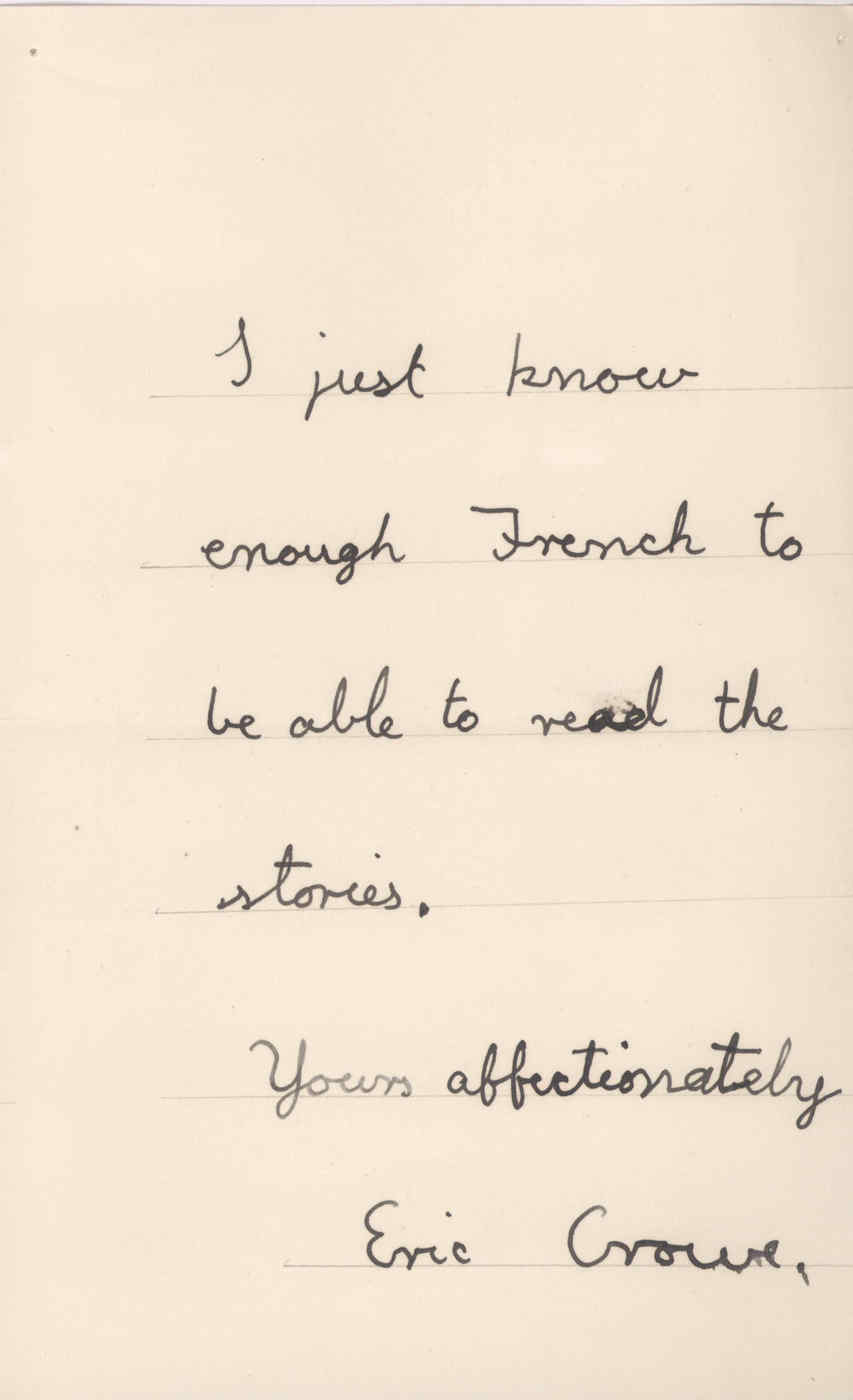 I just know
enough French to
be able to read the
stories.
Yours affectionately
Eric Crowe.